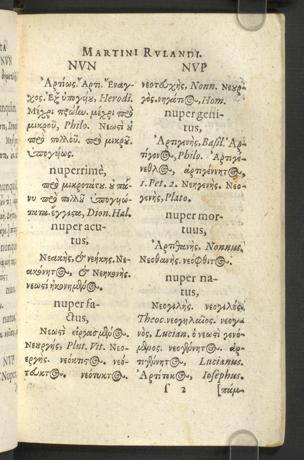 MARTINI RVLANDI.
NVN
Ἀρτίως. Ἄρτι. Ἔναγ-
χος. Ἐξ ὑπογύου, Herodi.
Μέχρι πρώην. μέχρι πρὸ
μικροῦ, Philo. Νεωστὶ
πρὸ πολλοῦ. πρὸ μικροῦ.
Ὑπογύως.
nuperrimè,
πρὸ μικροτάτου.
Dion. Hal.
nuper acu-
tus,
Νεακὴς, & νεήκης. Νε-
ακόνητος. & Νεηκονής.
νεωστὶ ἠκονημένος.
nuper fa-
ctus,
Νεωστὶ εἰργασμένος.
Νεουργὴς, Plut. Vit. Νεο-
εργής.
τευκτος. νεότυκτος.
NVP
νεοτευχής, Nonn. Νεουρ-
γὸς. νηγάτεος, Hom.
nuper geni-
tus,
Ἀρτιγενὴς, Basil. Ἀρ-
τίγονος, Philo. Ἀρτιγέ-
νεθλος, ἀρτιγέννητος,
1. Pet. 2. Νεηγενής. Νεο-
γενής, Plato.
nuper mor-
tuus,
Ἀρτιθανὴς. Nonnus,
Νεοθανής. νεόφθιτος.
nuper na-
tus,
Νεογελὴς. νεογιλὸς,
Theoc. νεογιλαῖος. νεογ-
νὸς, Lucian. ὁ νεωστὶ γενό-
μενος. νεογέννητος. ἀρ-
τιγέννητος, Lucianus.
Ἀρτίτοκος, Iosephus.
f 2 [πάμ-